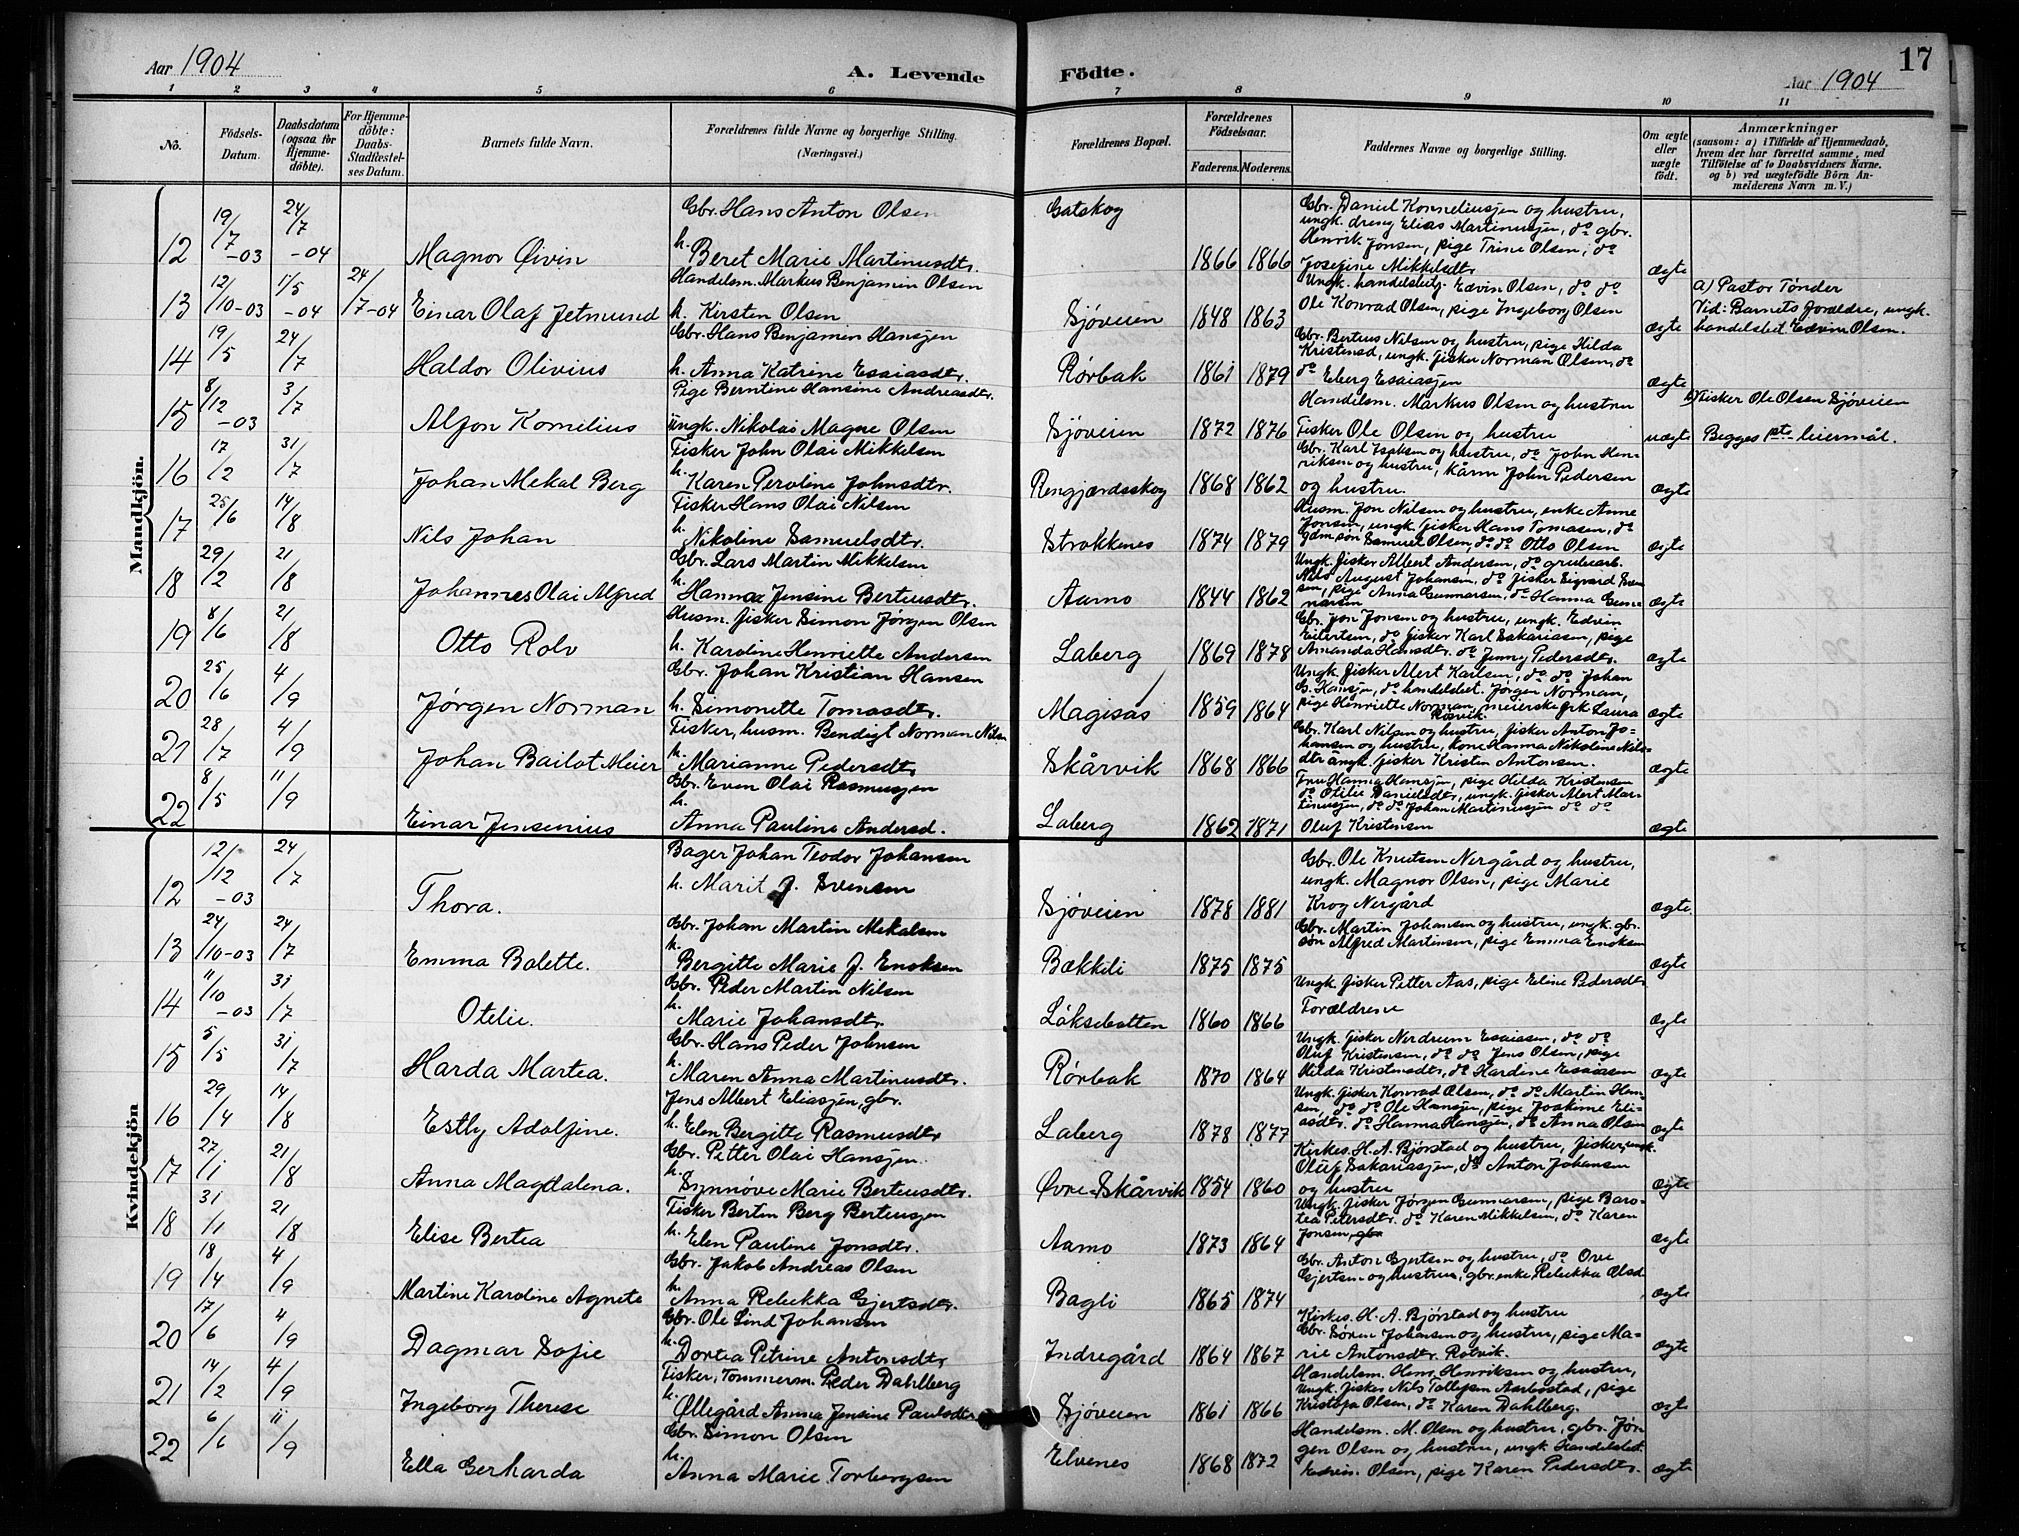 Aar 1904
A. Levende
Födte.
Aar 1904
17
1 2 3 4 5 6 7 8 9 10 11
No.
Födsels-
Datum.
Daabsdatum
(ogsaa for
Hjemme-
döbte).
For Hjemme-
döbte:
Daabs-
Stadfæstel-
ses Datum.
Barnets fulde Navn.
Forældrenes fulde Navne og borgerlige Stilling.
(Næringsvei.)
Forældrenes Bopæl.
Forældrenes
Födselsaar.
Faderens. Moderens.
Faddernes Navne og borgerlige Stilling.
Om ægte
eller
uægte
födt.
Anmærkninger
(saasom: a) i Tilfælde af Hjemmedaab,
hvem der har forrettet samme, med
Tilföielse af to Daabsvidners Navne.
og b) ved uægtefödte Börn An-
melderens Navn m. V.)
Mandkjön.
12 19/7 -03 24/7 -04 Magnor Øivin
Gbr. Hans Anton Olsen
h. Beret Marie Martinusdtr.
Gatskog 1866 1866
Gbr. Daniel Korneliussen og hustru,
ungk. dreng Elias Martinussen, do gbr.
Henrik Jonsen, pige Trine Olsen, do
Josefine Mikkelsdtr
ægte
13 12/10-03 1/5 -04 24/7-04 Einar Olaf Jetmund
Handelsm. Markus Benjamin Olsen
h. Kirsten Olsen
Sjøveien 1848 1863
Ungk. handelsbetj. Edvin Olsen, do do
Ole Konrad Olsen, pige Ingeborg Olsen
ægte
a) Pastor Tönder
Vid: Barnets forældre, ungk.
handelsbet Edvin Olsen.
14 19/5 24/7 Haldor Olivius
Gbr. Hans Benjamin Hansen
h. Anna Katrine Esaiasdtr.
Rørbak 1861 1879
Gbr. Berteus Nilsen og hustru, pige Hilda
Kristensd, ungk. fisker Norman Olsen, do
do Eberg Esaiassen
ægte
15 8/12 -03 3/7 Alfon Kornelius
Pige Berntine Hansine Andreasdtr.
Ungk. Nikolai Magne Olsen
Sjøveien 1872 1876
Handelsm. Markus Olsen og hustru
Fisker Ole Olsen og hustru
uægte
b) Fisker Ole Olsen Sjøveien
Begges pte leiermål.
16 17/2 31/7 Johan Mekal Berg
Fisker John Olai Mikkelsen
h. Karen Peroline Johnsdtr.
Rengjærdsskog 1868 1862
Gbr. Karl Isaksen og hustru, do John Hen-
riksen og hustru, kårm John Pedersen
og hustru.
ægte
17 25/6 14/8 Nils Johan
Fisker Hans Olai Nilsen
h. Nikoline Samuelsdtr.
Strokkenes 1874 1879
Husm. Jon Nilsen og hustru, enke Anne
Jonsen, ungk. fisker Hans Tomasen, do
gdm.søn Samuel Olsen, do do Otto Olsen
ægte
18 29/2 21/8 Johannes Olai Alfred
Gbr. Lars Martin Mikkelsen
h. Hanna Jensine Berteusdtr.
Aarno 1844 1862
Ungk. fisker Albert Andersen, do grubearb.
Nils August Johansen, do fisker Sigvard Iven-
sen, pige Anna Gunnarsen, do Hanna Gun-
narsen
ægte
19 8/6 21/8 Otto Rolv
Husm. fisker Simon Jørgen Olsen
h. Karoline Henriette Andersen
Laberg 1869 1878
Gbr. Jon Jonsen og hustru, ungk. Edvin
Eilertsen, do fisker Karl Sakariassen, pige
Amanda Hansdtr. do Jenny Pedersdtr.
ægte
20 25/6 4/9 Jørgen Norman
Gbr. Johan Kristian Hansen
h. Simonette Tomasdtr.
Magisås 1859 1864
Ungk. fisker Alert Karlsen, do do Johan
G. Hansen, do handelsbet. Jørgen Norman,
pige Henriette Norman, meierske frk Laura
Rosvik.
ægte
21 28/7 4/9 Johan Bailot Meier
Fisker, husm. Bendigt Norman Nilsen
h. Marianne Pedersdtr
Skårvik 1868 1866
Gbr. Karl Nilsen og hustru, fisker Anton Jo-
hansen og hustru, kone Hanna Nikoline Nils-
dtr ungk. fisker Kristen Antonsen.
ægte
22 8/5 11/9 Einar Jensenius
Gbr. Even Olai Rasmussen
h. Anna Pauline Andersd.
Laberg 1862 1871
Fru Hanna Hansen, pige Hilda Kristensen
do Otilie Danielsdtr, ungk. fisker Alert Mar-
tinussen, do do Johan Martinussen do do
Oluf Kristensen
ægte
Kvindekjön
12 12/12 -03 24/7 Thora.
Bager Johan Teodor Johansen
h. Marit J. Svensen
Sjøveien 1878 1881
Gbr. Ole Knutsen Nergård og hustru,
ungk. Magnor Olsen, pige Marie
Krog Nergård
ægte.
13 24/10-03 24/7 Emma Balette.
Gbr. Johan Martin Mekalsen
h. Bergitte Marie J. Enoksen
Bækkeli 1875 1875
Gbr. Martin Johansen og hustru, ungk. gbr.
søn Alfred Martinsen, pige Emma Enoksen
ægte
14 11/10 -03 31/7 Otelie.
Gbr. Peder Martin Nilsen
h. Marie Johansdtr.
Låksebotten 1860 1866
Ungk. fisker Petter Aas, pige Eline Pedersdtr
Forældrene
ægte
15 5/5 31/7 Harda Martea.
Gbr. Hans Peder Johnsen
h. Maren Anna Martinusdtr.
Rørbak 1870 1864
Ungk. fisker Nerdrum Esaiassen, do do
Oluf Kristensen, do do Jens Olsen, pige
Hilda Kristensdtr, do Hardine Esaiassen
ægte
16 29/4 14/8 Estly Adolfine.
Jens Albert Eliassen, gbr.
h. Elen Bergitte Rasmusdtr
Laberg 1878 1877
Ungk. fisker Konrad Olsen, do do Martin Han-
sen, do do Ole Hansen, pige Joakime Eli-
asdtr. do Hanna Hansen, do Anna Olsen
ægte
17 27/1 21/8 Anna Magdalena.
Gbr. Petter Olai Hansen.
h. Synnøve Marie Berteusdtr.
Øvre-Skårvik 1854 1860
Kirkes. H. A. Bjørstad og hustru, fisker, ungk.
Oluf Sakariassen, do Anton Johansen
og hustru
ægte
18 31/1 21/8 Elise Bertea
Fisker Bertin Berg Berteussen
h. Elen Pauline Jonsdtr.
Aarno 1873 1864
Ungk. fisker Jørgen Gunnarsen, pige Baro-
tea Petersdtr. do Karen Mikkelsen, do Karen
Jonsen, gbr
ægte
19 18/4 4/9 Martine Karoline Agnete
Gbr. Jakob Andreas Olsen
h. Anna Rebekka Gjertsdtr.
Bagli 1865 1874
Gbr. Anton Gjertsen og hustru, do Ove
Gjertsen og hustru, gbr.enke Rebekka Olsd.
ægte
20 17/6 4/9 Dagmar Sofie
Gbr. Ole Lind Johansen
h. Dortea Petrine Antonsdtr
Indregård 1864 1867
Kirkes. H. A. Bjørstad og hustru
Gbr. Søren Johansen og hustru, pige Ma-
rie Antonsdtr. Rotvik.
ægte
21 14/2 4/9 Ingeborg Therese
Fisker, Tømmerm. Peder Dahlberg
h. Øllegård Anna Jensine Paulsdtr
Sjøveien 1861 1866
Handelsm. Hans Henriksen og hustru,
Ungk. fisker Nils Tollefsen Aarbostad, pige
Kristofa Olsen, do Karen Dahlberg.
ægte
22 6/6 11/9 Ella Gerharda
Gbr. Simon Olsen
h. Anna Marie Torbergsen
Elvenes 1868 1872
Handelsm. M. Olsen og hustru, gbr. Jør-
gen Olsen og hustru, ungk. Handelsbet.
Edvin. Olsen, pige Karen Pedersdtr.
ægte